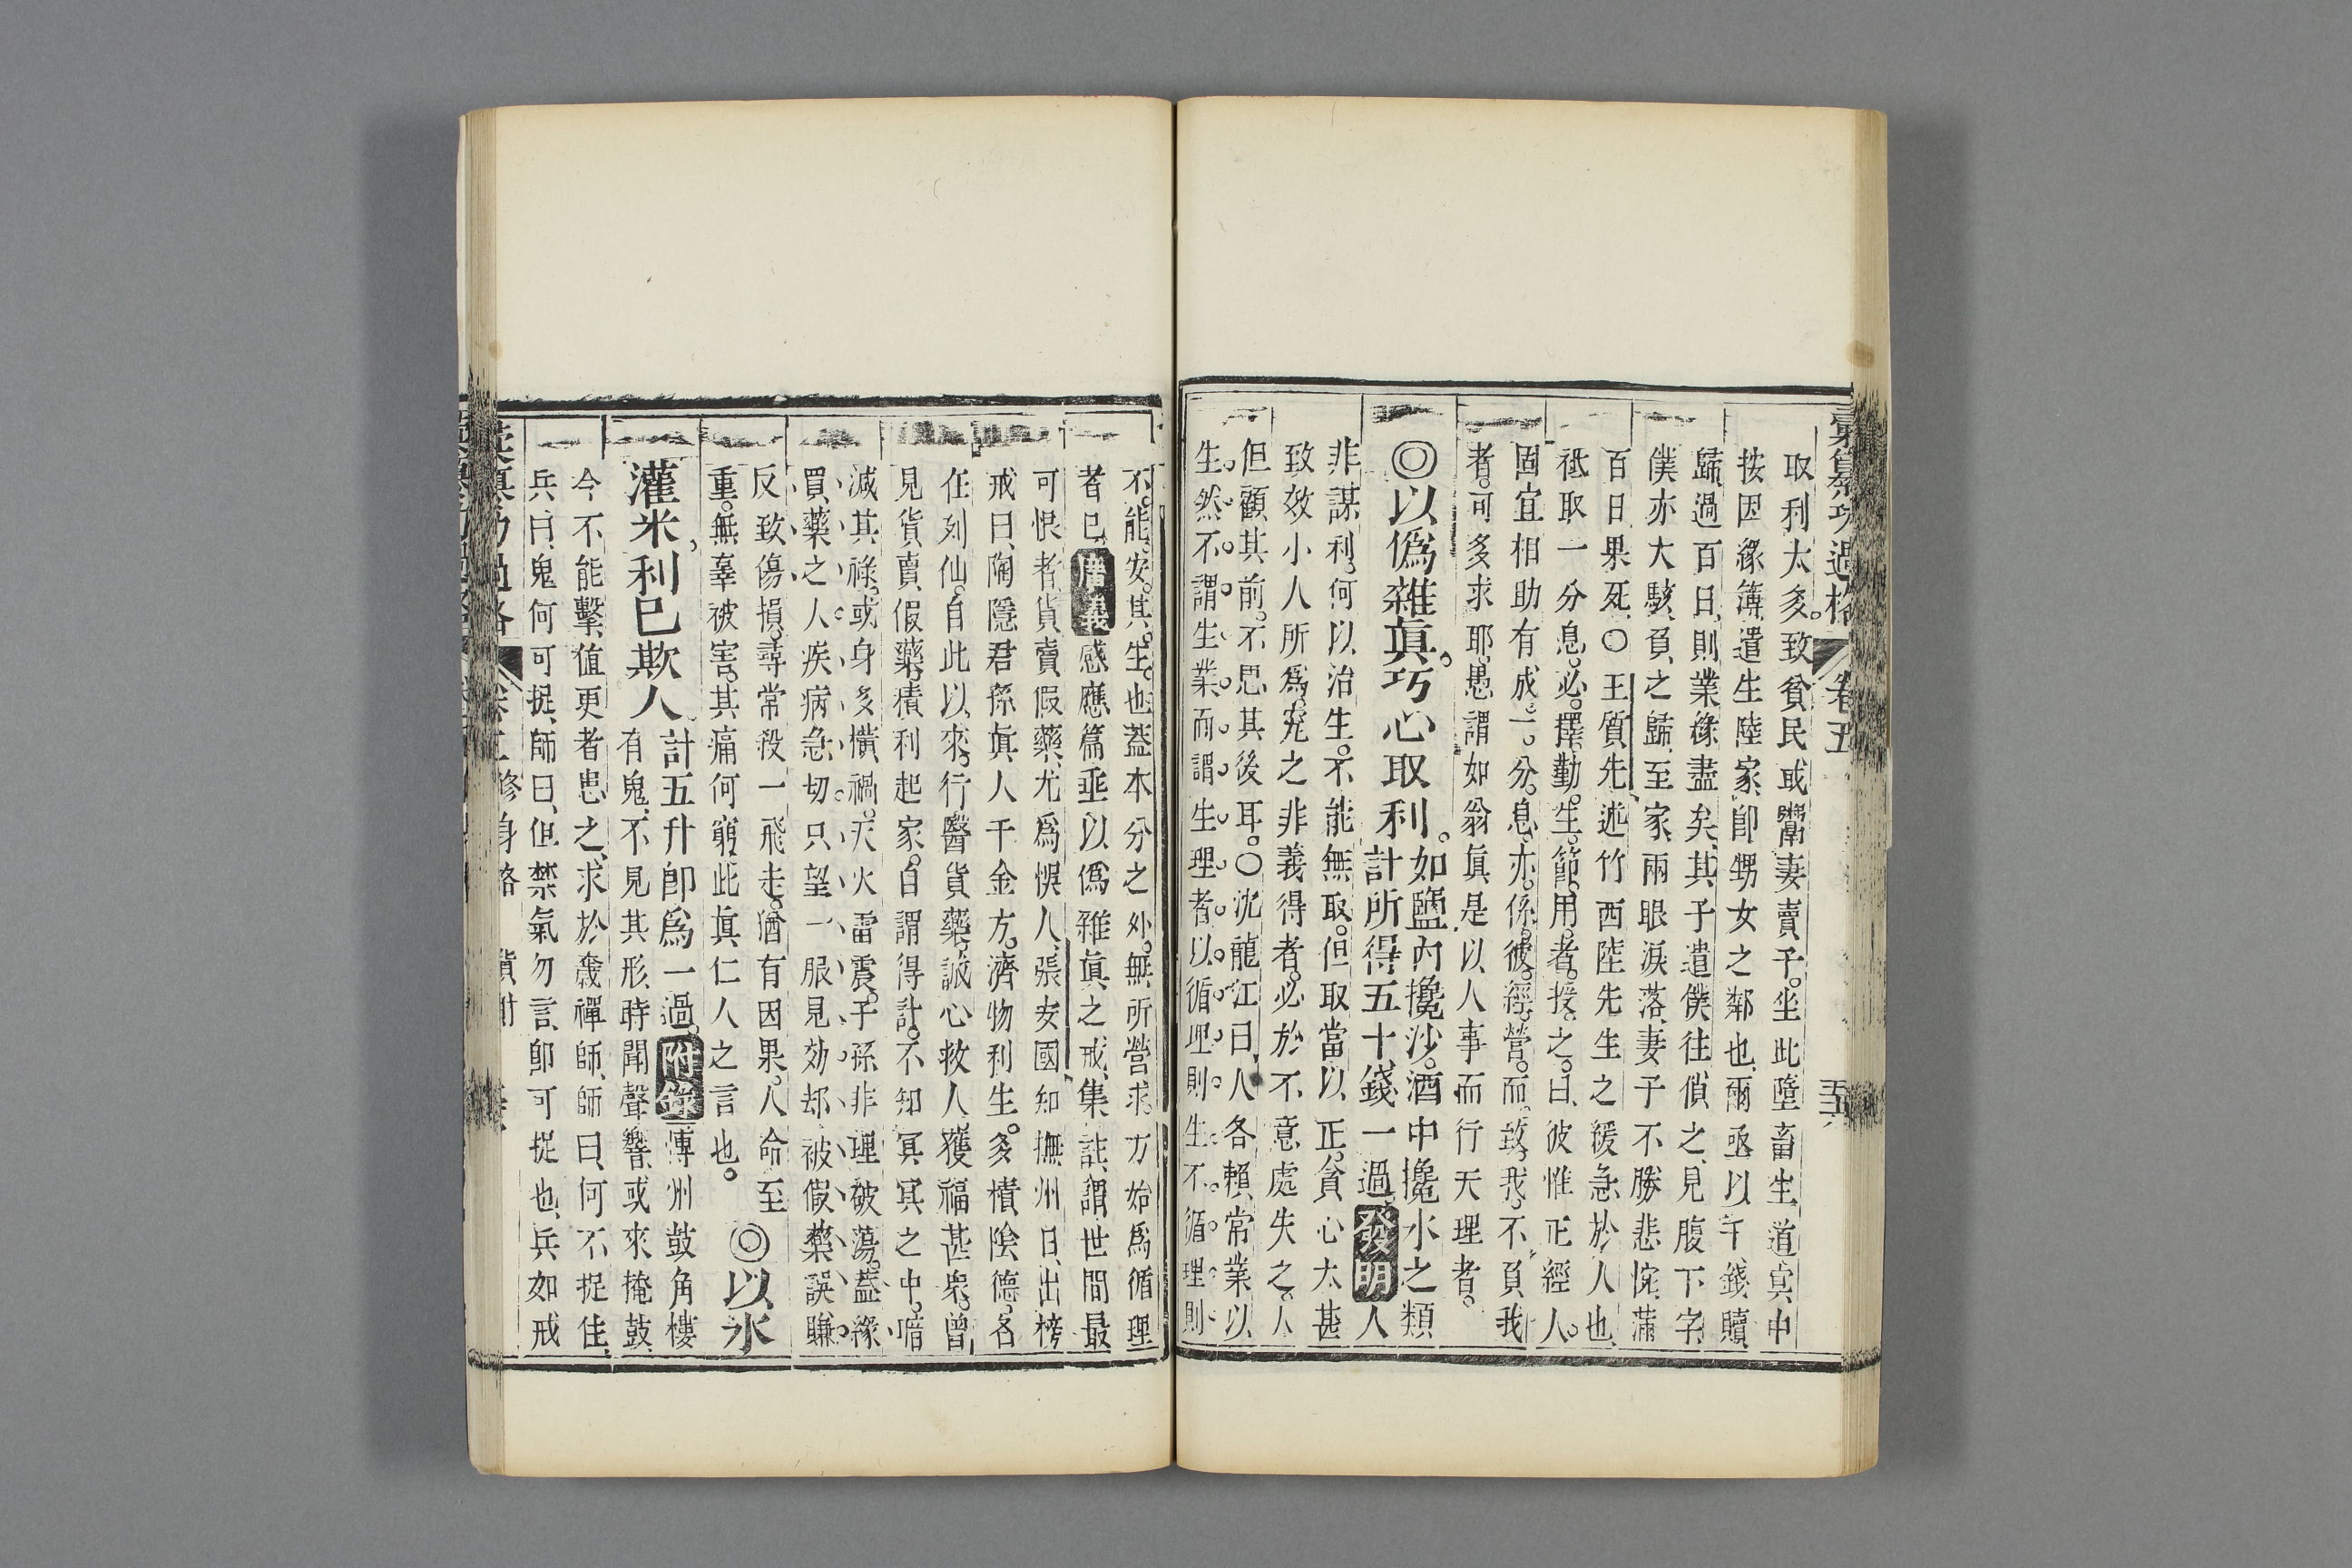 彙纂功過格 卷五
取利太多。致貧民或鬻妻賣子。坐此墮畜生道。冥中
按因緣簿遣生陸家、卽甥女之鄰也、爾亟以千錢贖
歸、過百日、則業緣盡矣、其子遣僕往偵之、見腹下字、
僕亦大駭、負之歸、至家、兩眼淚落、妻子不勝悲惋、滿
百日果死、〇王質先述竹西陸先生之緩急於人也、
祗取一分息。必擇勤生節用者。授之。曰、彼惟正經人。
固宜相助有成。一分息、亦係彼經營。而致我。不負我
者。可多求耶。愚謂如翁眞是以人事而行天理者。
◎以僞雜眞。巧心取利。如鹽內攙沙。酒中攙水之類
計所得五十錢一過。發明人
非謀利。何以治生。不能無取。但取當以正。貪心太甚
致效小人所爲。究之非義得者。必於不意處失之。人
但顧其前。不思其後耳。〇沈龍江曰、人各賴常業以
生。然不謂生業。而謂生理者。以循理則生。不循理則
不能安其生也。蓋本分之外。無所營求。方始爲循理
者已、廣義感應篇垂以僞雜眞之戒、集註謂世間最
可恨者、貨賣假藥、尤爲悞人、張安國知撫州日、出榜
戒曰、陶隱君孫眞人千金方。濟物利生。多積陰德、名
在列仙。自此以來。行醫貨藥。誠心救人。獲福甚衆。曾
見貨賣假藥。積利起家。自謂得計。不知冥冥之中。暗
減其祿。或身多橫禍。天火雷震。子孫非理破蕩。蓋緣
買藥之人。疾病急切。只望一服見効。却被假藥誤賺。
反致傷損。尋常殺一飛走。猶有因果。人命至
重。無辜被害。其痛何窮、此眞仁人之言也。 ◎以水
灌米利已欺人。計五升卽爲一過。附錄博州鼓角樓
有鬼、不見其形、時聞聲響、或來掩鼓、
今不能擊、値更者患之、求於巍禪師、師曰、何不捉住、
兵曰、鬼何可捉、師曰、但禁氣勿言、卽可捉也、兵如戒